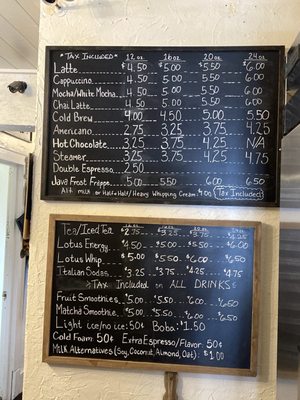 *TAX INCLUDED* 12 oz 16 oz 20 oz 24 oz
Latte $4.50 $5.00 $5.50 $6.00
Cappuccino 4.50 5.00 5.50 6.00
Mocha/White Mocha 4.50 5.00 5.50 6.00
Chai Latte 4.50 5.00 5.50 6.00
Cold Brew 4.00 4.50 5.00 5.50
Americano 2.75 3.25 3.75 4.25
Hot Chocolate 3.25 3.75 4.25 N/A
Steamer 3.25 3.75 4.25 4.75
Double Espresso 2.50
Java Frost Frappe 5.00 5.50 6.00 6.50
Alt. milk or Half+Half/Heavy Whipping Cream (Tax Included)
Tea/Iced Tea $2.75 $3.25 $3.75
Lotus Energy $4.50 $5.00 $5.50 $6.00
Lotus Whip $5.00 $5.50 $6.00 $6.50
Italian Sodas $3.25 $3.75 $4.25 $4.75
*TAX Included on ALL DRINKS*
Fruit Smoothies $5.00 $5.50 $6.00 $6.50
Matcha Smoothie $5.00 $5.50 $6.00 $6.50
Light ice/no ice: 50¢ Boba: $1.50
Cold Foam: 50¢ Extra Espresso/Flavor: 50¢
Milk Alternatives (Soy, Coconut, Almond, Oat): $1.00